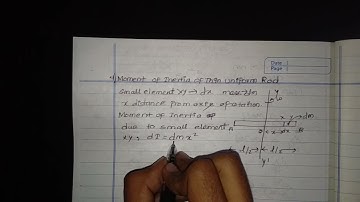 Date
Page
Moment of Inertia of Thin Uniform Rod
Small element xy → dx mass = dm
x distance from axis of rotation
Moment of Inertia of
due to small element
xy, dI = dm x²
y
x y → dm
A
B
0
x
dx
l/2
l/2
y'